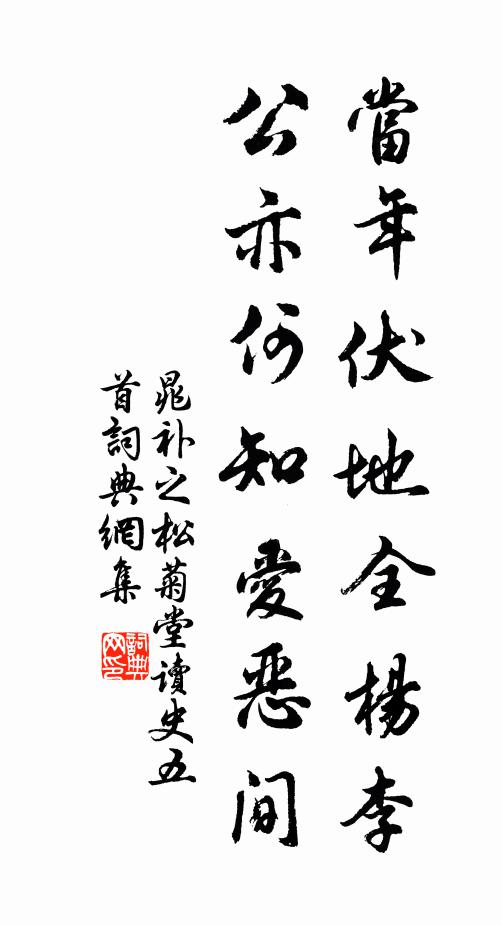 當年伏地全楊李
公亦何知愛惡间
晁补之松菊堂讀史五
首詞典網集
詞典
网印